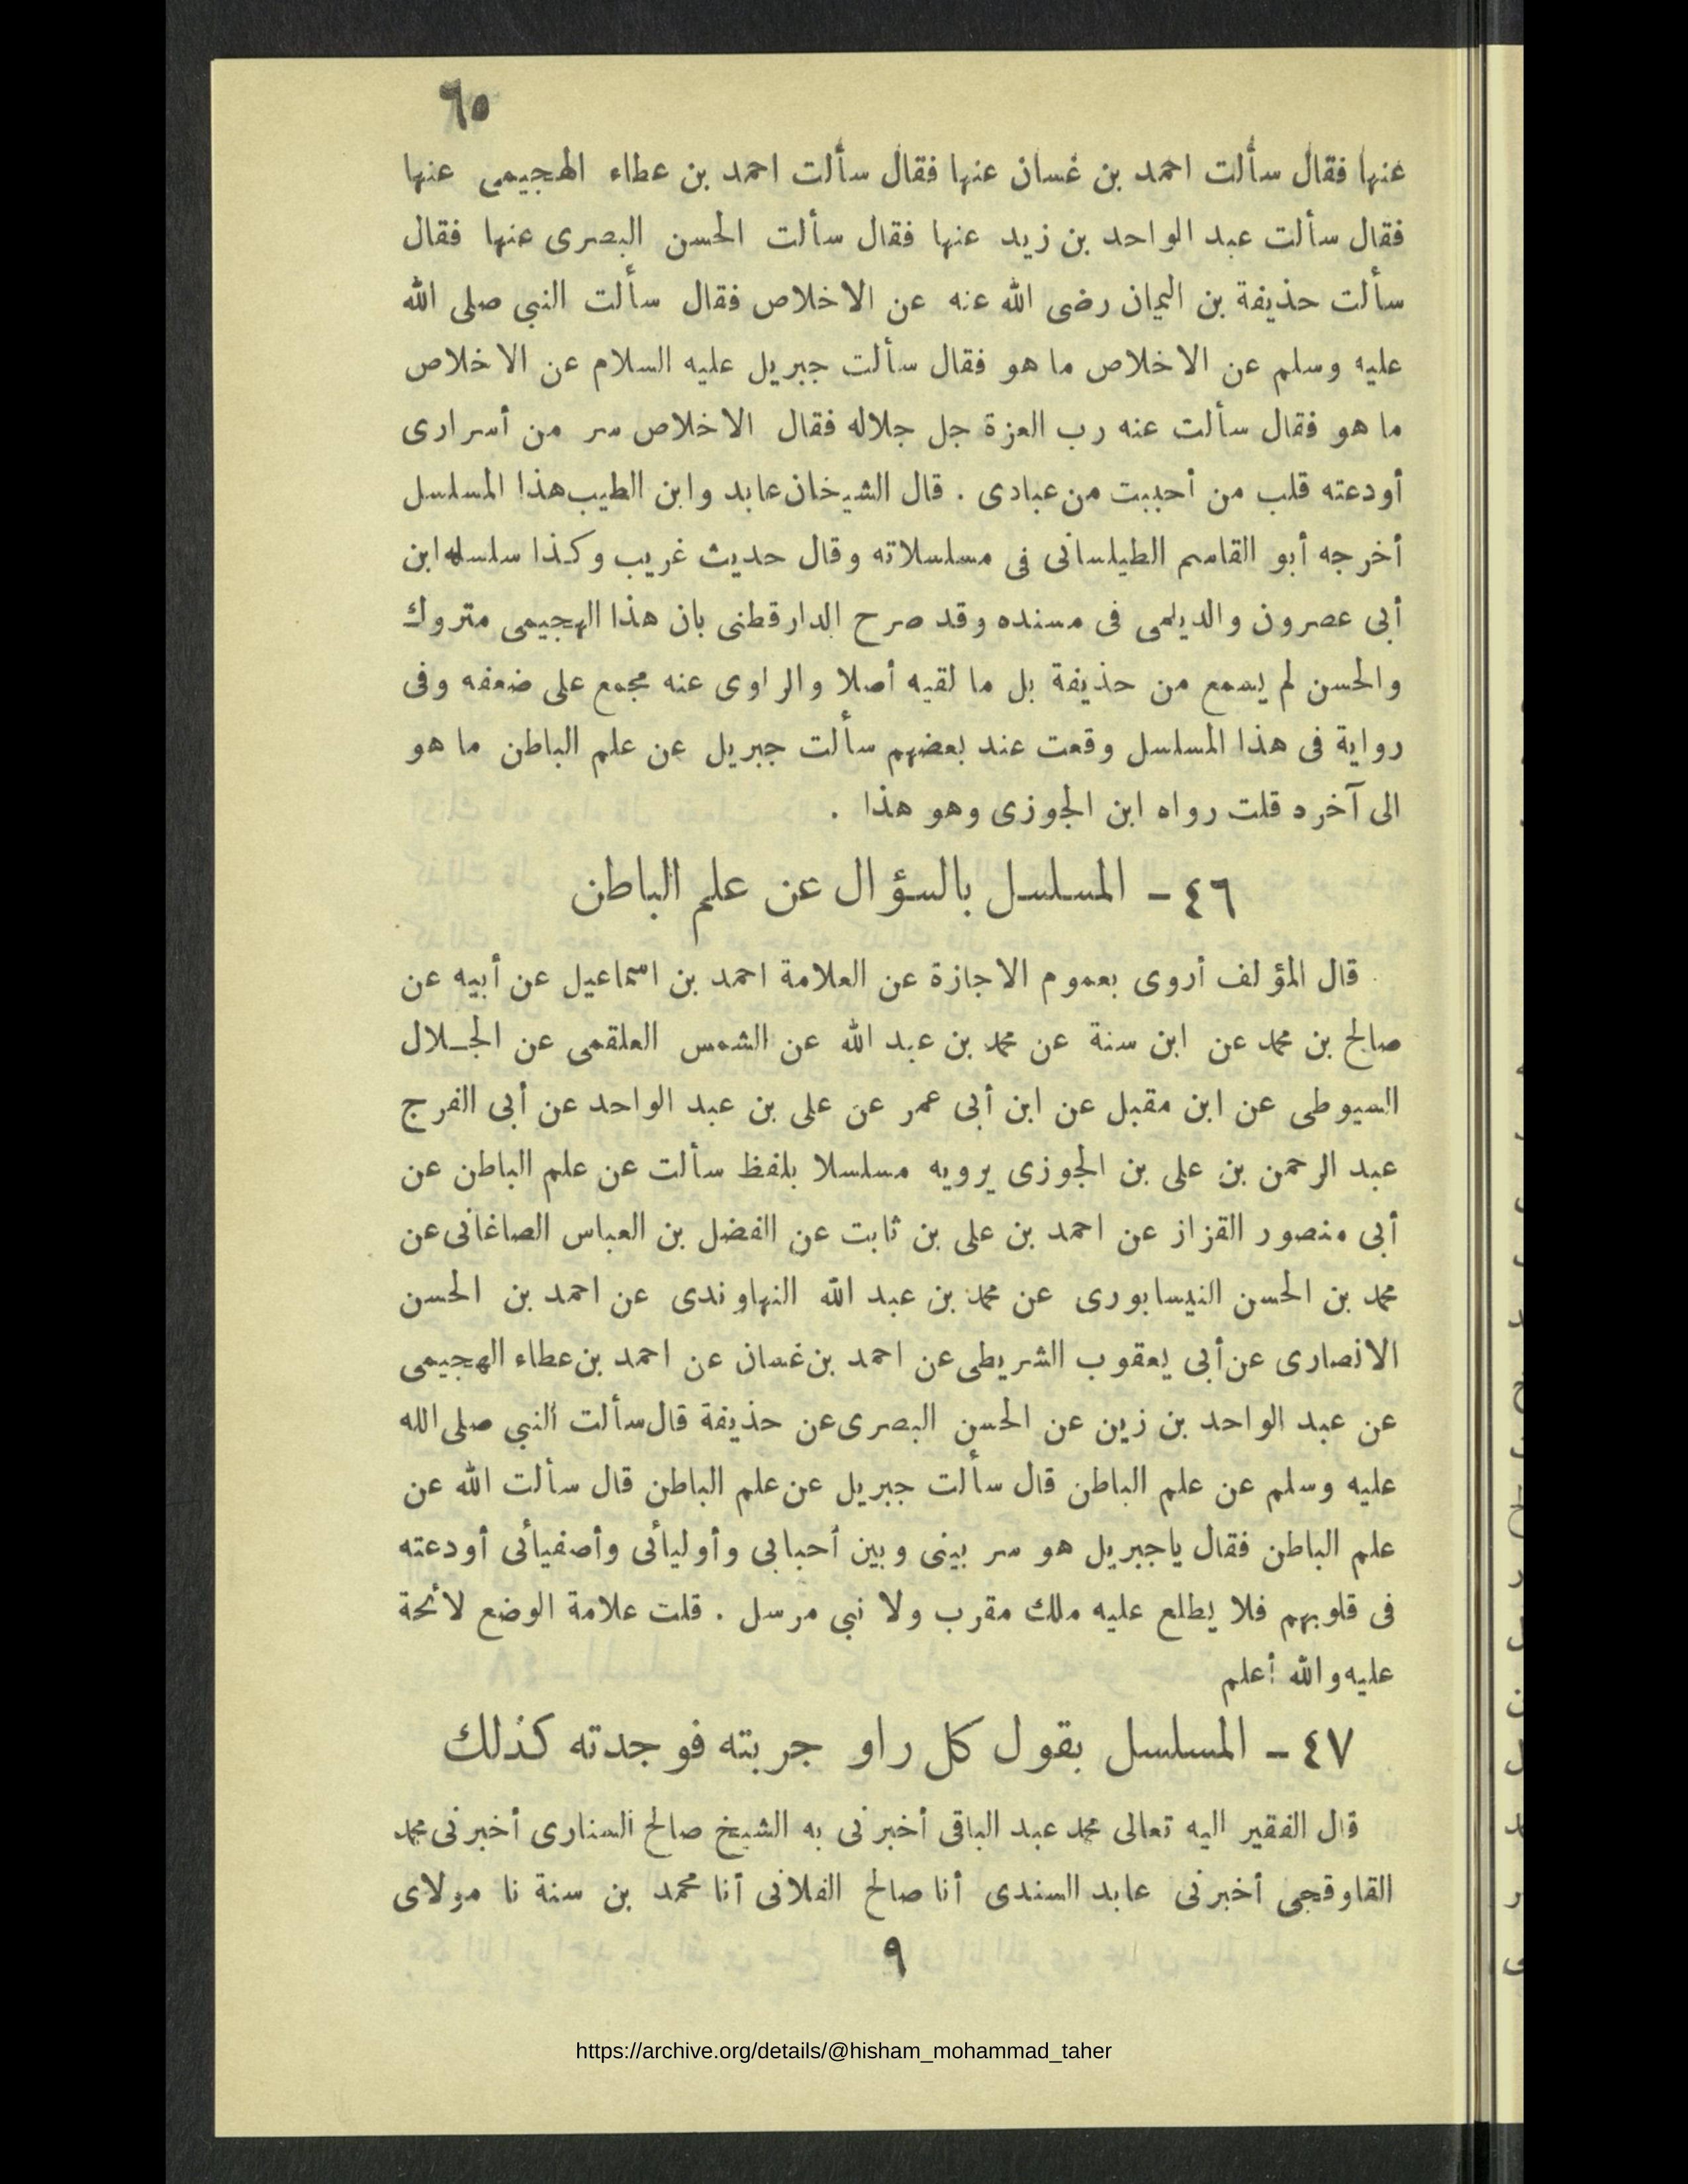 ٦٥
عنها فقال سألت احمد بن غسان عنها فقال سألت احمد بن عطاء الهجيمى عنها
فقال سألت عبد الواحد بن زيد عنها فقال سألت الحسن البصرى عنها فقال
سألت حذيفة بن اليمان رضى الله عنه عن الاخلاص فقال سألت النبى صلى الله
عليه وسلم عن الاخلاص ما هو فقال سألت جبريل عليه السلام عن الاخلاص
ما هو فقال سألت عنه رب العزة جل جلاله فقال الاخلاص سر من أسرارى
أودعته قلب من أحببت من عبادى . قال الشيخان عابد وابن الطيب هذا المسلسل
أخرجه أبو القاسم الطيلسانى فى مسلسلاته وقال حديث غريب وكذا سلسله ابن
أبى عصرون والديلمى فى مسنده وقد صرح الدارقطنى بان هذا الهجيمى متروك
والحسن لم يسمع من حذيفة بل ما لقيه أصلا والراوى عنه مجمع على ضعفه وفى
رواية فى هذا المسلسل وقعت عند بعضهم سألت جبريل عن علم الباطن ما هو
الى آخره قلت رواه ابن الجوزى وهو هذا .
٤٦ - المسلسل بالسؤال عن علم الباطن
قال المؤلف أروى بعموم الاجازة عن العلامة احمد بن اسماعيل عن أبيه عن
صالح بن محمد عن ابن سنة عن محمد بن عبد الله عن الشمس العلقمى عن الجلال
السيوطى عن ابن مقبل عن ابن أبى عمر عن على بن عبد الواحد عن أبى الفرج
عبد الرحمن بن على بن الجوزى يرويه مسلسلا بلفظ سألت عن علم الباطن عن
أبى منصور القزاز عن احمد بن على بن ثابت عن الفضل بن العباس الصاغانى عن
محمد بن الحسن النيسابورى عن محمد بن عبد الله النهاوندى عن احمد بن الحسن
الانصارى عن أبى يعقوب الشريطى عن احمد بن غسان عن احمد بن عطاء الهجيمى
عن عبد الواحد بن زين عن الحسن البصرى عن حذيفة قال سألت النبي صلى الله
عليه وسلم عن علم الباطن قال سألت جبريل عن علم الباطن قال سألت الله عن
علم الباطن فقال ياجبريل هو سر بينى وبين أحبابى وأوليائى وأصفيائى أودعته
فى قلوبهم فلا يطلع عليه ملك مقرب ولا نبى مرسل . قلت علامة الوضع لائحة
عليه والله أعلم
٤٧ - المسلسل بقول كل راو جربته فوجدته كذلك
قال الفقير اليه تعالى محمد عبد الباقى أخبرنى به الشيخ صالح السنارى أخبرنى محمد
القاوقجى أخبرنى عابد السندى أنا صالح الفلانى أنا محمد بن سنة نا مولاى
٩
https://archive.org/details/@hisham_mohammad_taher